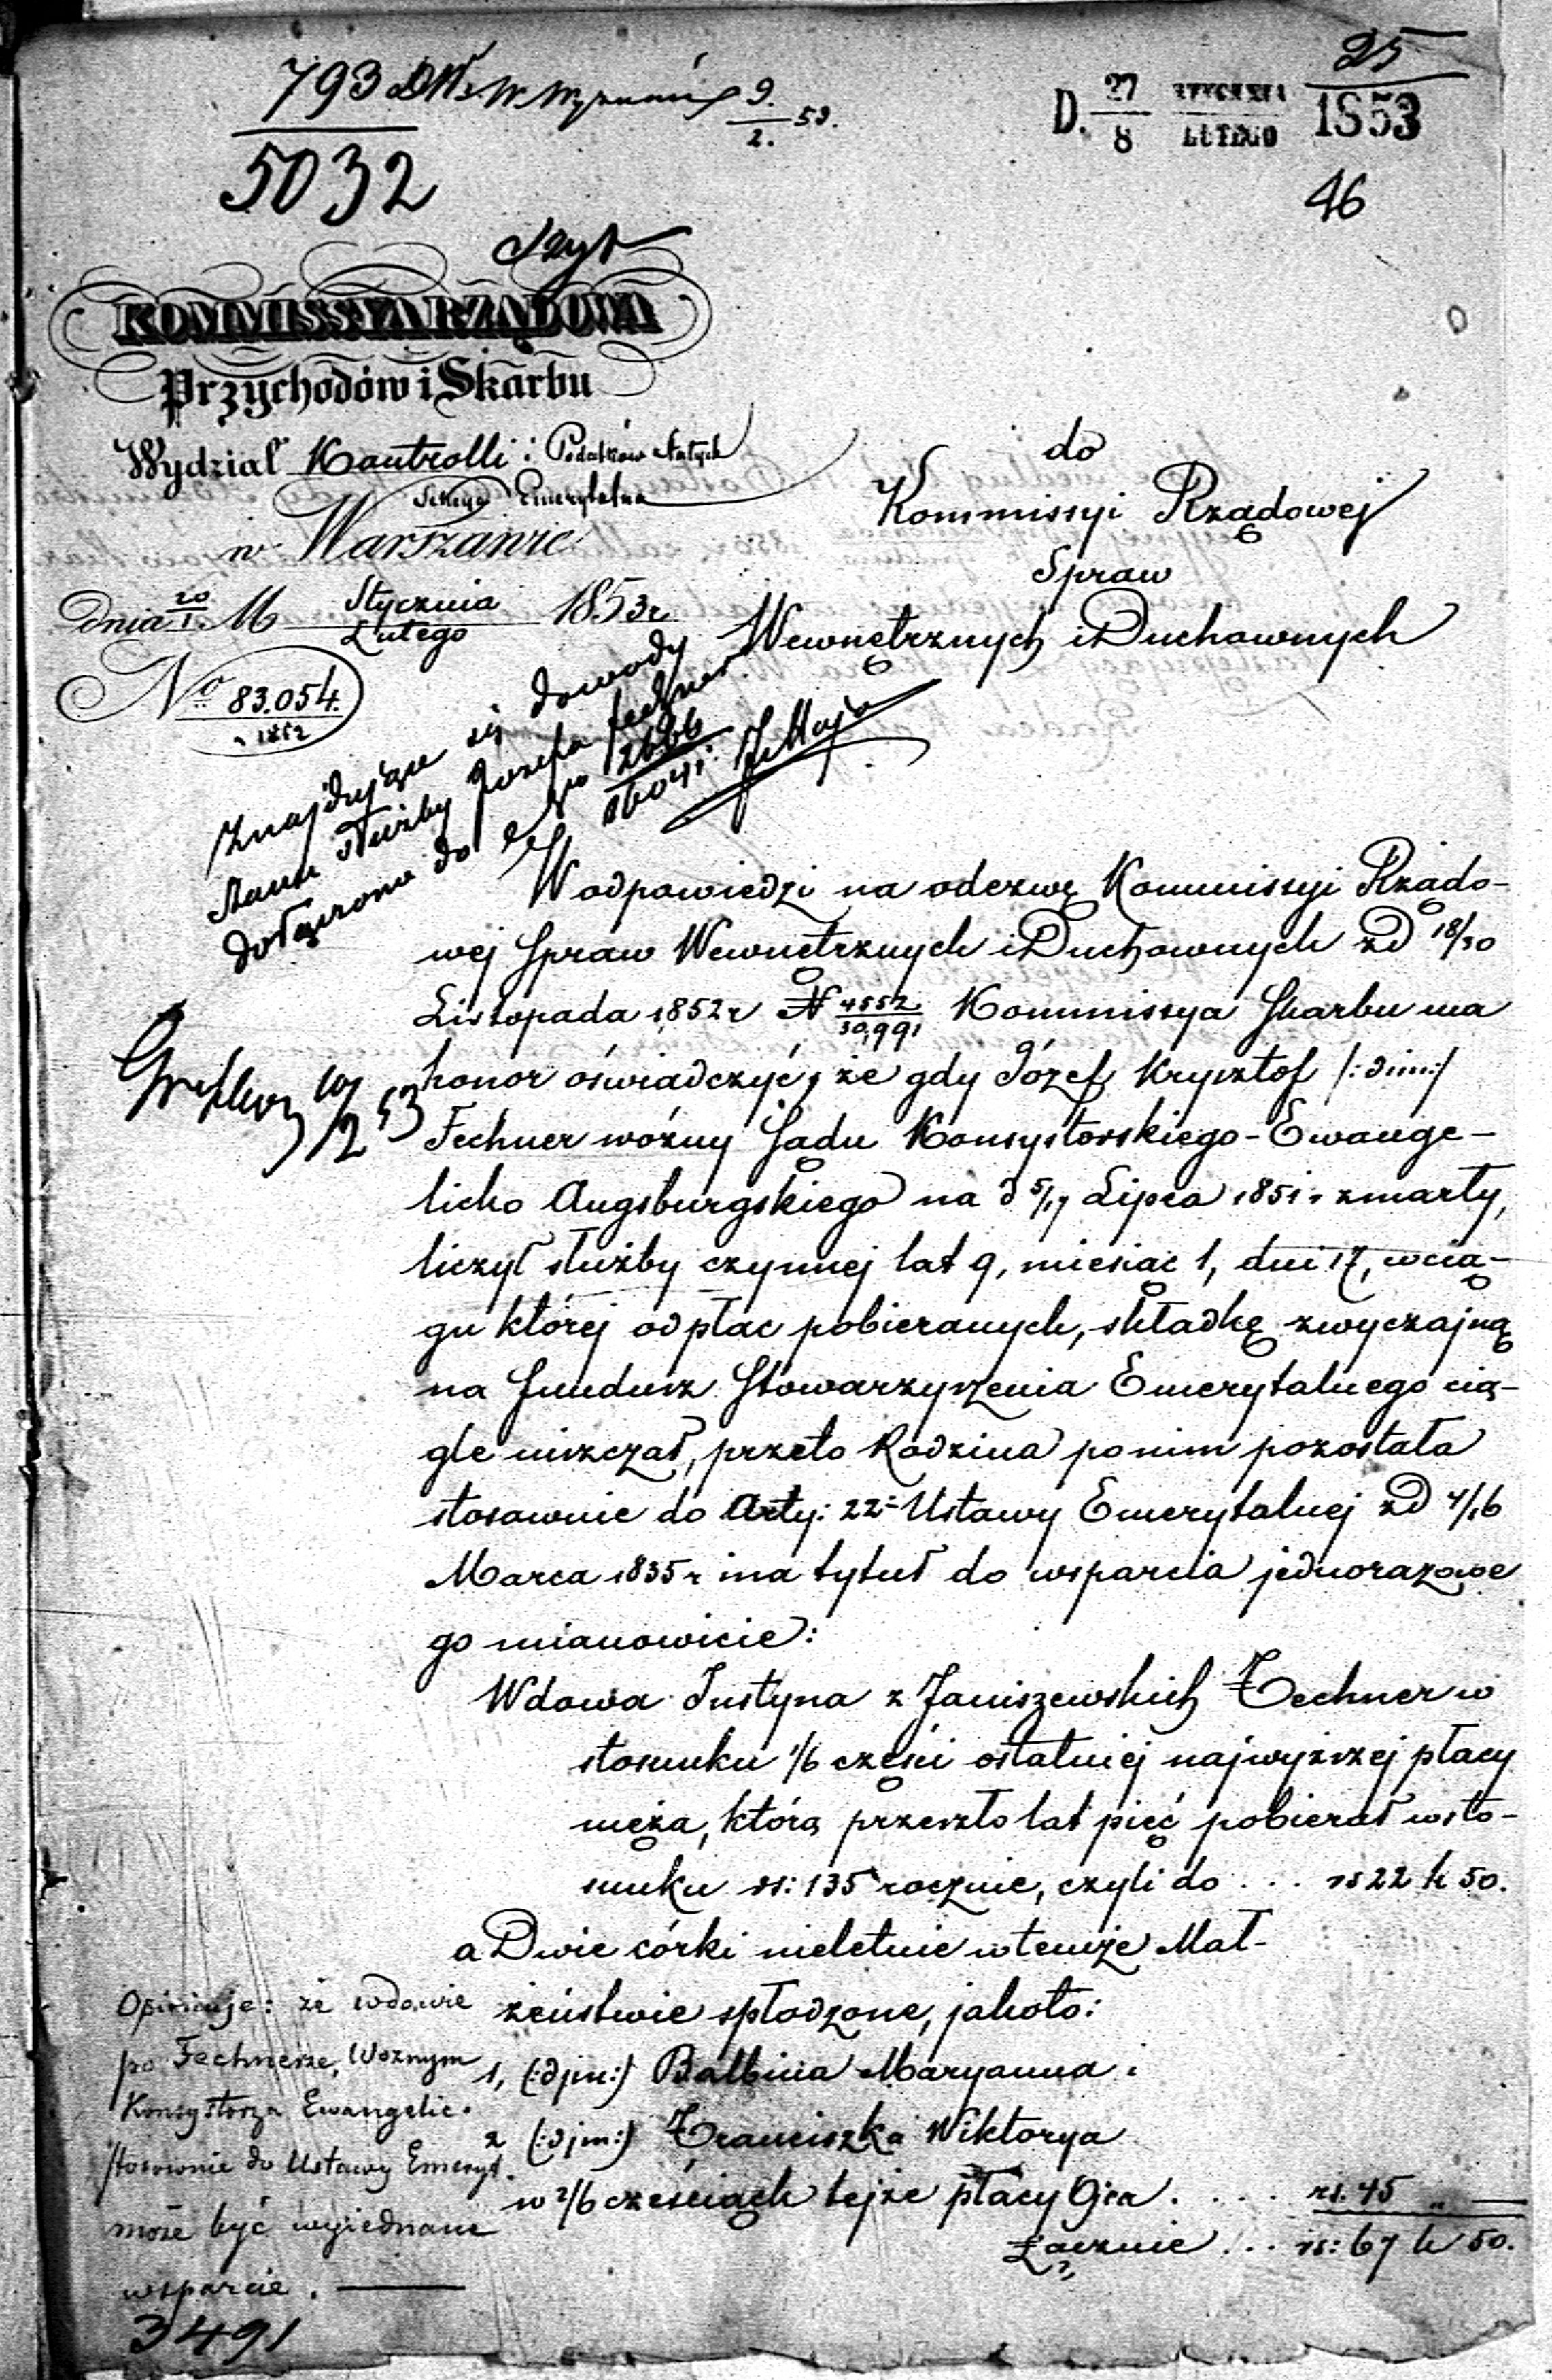 793
5032
9/2 53.
25
D. 27/8 STYCZNIA/LUTEGO 1853
46
KOMMISSYA RZĄDOWA
Przychodów i Skarbu
Wydział Kontrolli i Podatków Stałych
Sekcya Emerytalna
w Warszawie
dnia 20/1 M Stycznia/Lutego 1853 r
No 83.054
1852
do
Kommissyi Rządowej
Spraw
Wewnętrznych i Duchownych
Znajdujące się dowody
Stanu służby Józefa Fechner
dołączono do No 2666
W odpowiedzi na odezwę Kommissyi Rządo-
wej Spraw Wewnętrznych i Duchownych z d 18/30
Listopada 1852 r N 4552/30,991 Kommissya Skarbu ma
honor oświadczyć, że gdy Józef Krysztof /:dim:/
Fechner woźny Sądu Konsystorskiego-Ewange-
licko Augsburgskiego na d 5/17 Lipca 1851 r zmarły,
liczył służby czynnej lat 9, miesiąc 1, dni 17, w cią-
gu której od płac pobieranych, składkę zwyczajną
na fundusz Stowarzyszenia Emerytalnego cią-
gle uiszczał, przeto Rodzina po nim pozostała
stosownie do Arty: 22 Ustawy Emerytalnej z d 4/16
Marca 1835 r ma tytuł do wsparcia jednorazowe
go mianowicie:
Wdowa Justyna z Janiszewskich Fechner w
stosunku 1/6 części ostatniej najwyższej płacy
męża, którą przeszło lat pięć pobierał w sto-
sunku rs: 135 rocznie, czyli do . . . rs 22 k 50.
a Dwie córki nieletnie w temże Mał-
żeństwie spłodzone, jakoto:
1, (:djm:) Balbina Maryanna i
2 (:djm:) Franciszka Wiktorya
w 2/6 częściach tejże płacy Ojca . . . . rs. 45 „ —
Łącznie . . . rs: 67 k 50.
Opiniuje: że wdowie
po Fechnerze, Woznym
Konsystorza Ewangelic.
stosownie do Ustawy Emeryt.
może być wyjednane
wsparcie. —
3491